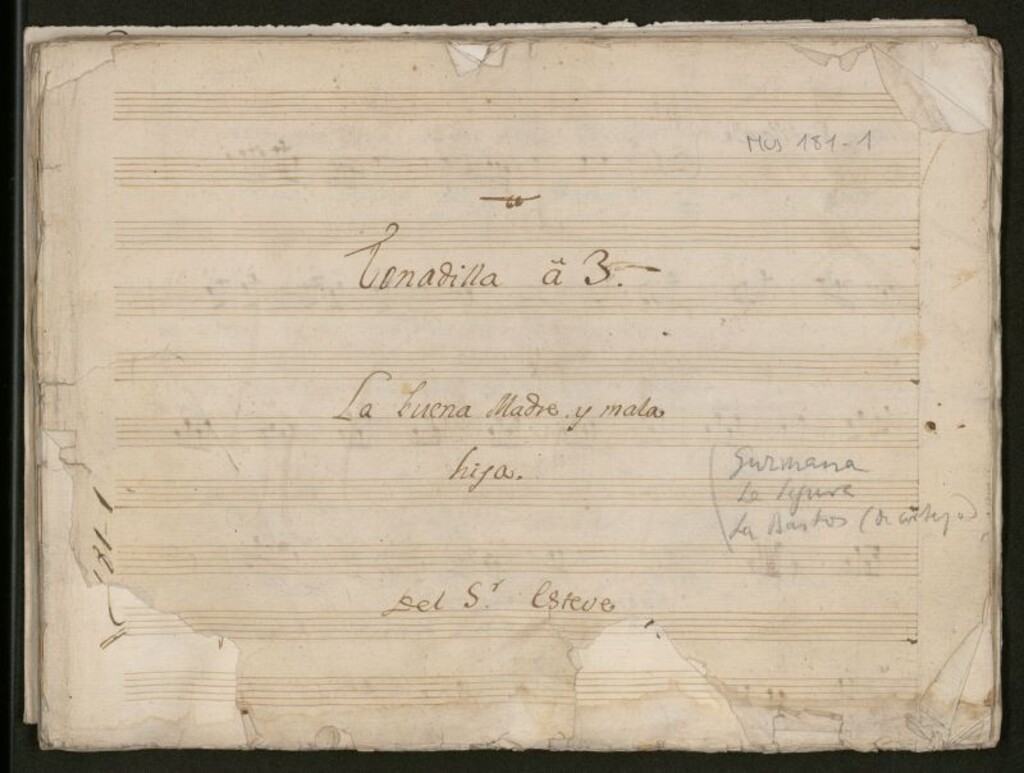 Mus 181-1
Tonadilla â 3.
La buena Madre, y mala
hija.
Guzmana
La Segura
La Bastos (de cortejo)
181-1
Del S.r Esteve